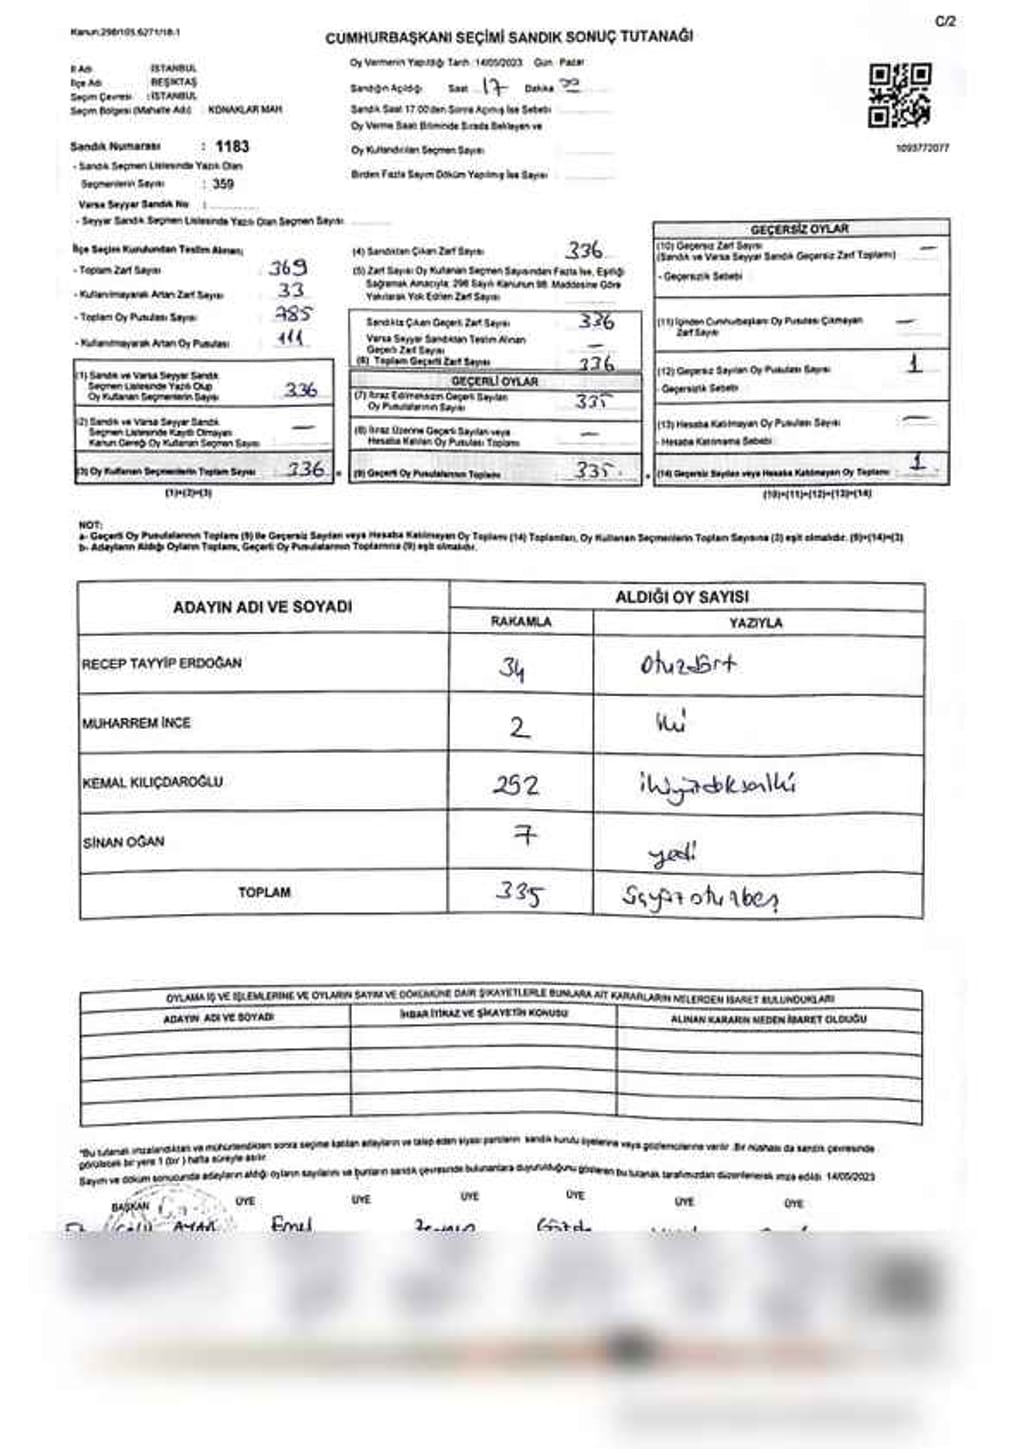 C/2
Kanun:298/105,6271/18-1
CUMHURBAŞKANI SEÇİMİ SANDIK SONUÇ TUTANAĞI
İl Adı : İSTANBUL
İlçe Adı : BEŞİKTAŞ
Seçim Çevresi : İSTANBUL
Seçim Bölgesi (Mahalle Adı) : KONAKLAR MAH
Sandık Numarası : 1183
- Sandık Seçmen Listesinde Yazılı Olan
Seçmenlerin Sayısı : 359
Varsa Seyyar Sandık No :
- Seyyar Sandık Seçmen Listesinde Yazılı Olan Seçmen Sayısı:
Oy Vermenin Yapıldığı Tarih :14/05/2023 Gün : Pazar
Sandığın Açıldığı Saat 17 Dakika 00
Sandık Saat 17.00'den Sonra Açılmış İse Sebebi
Oy Verme Saati Bitiminde Sırada Bekleyen ve
Oy Kullandırılan Seçmen Sayısı
Birden Fazla Sayım Döküm Yapılmış İse Sayısı
1093772077
İlçe Seçim Kurulundan Teslim Alınan;
- Toplam Zarf Sayısı 369
- Kullanılmayarak Artan Zarf Sayısı 33
- Toplam Oy Pusulası Sayısı
- Kullanılmayarak Artan Oy Pusulası 111
(1) Sandık ve Varsa Seyyar Sandık
Seçmen Listesinde Yazılı Olup
Oy Kullanan Seçmenlerin Sayısı 336
(2) Sandık ve Varsa Seyyar Sandık
Seçmen Listesinde Kayıtlı Olmayan
Kanun Gereği Oy Kullanan Seçmen Sayısı —
(3) Oy Kullanan Seçmenlerin Toplam Sayısı 336
(1)+(2)=(3)
(4) Sandıktan Çıkan Zarf Sayısı 336
(5) Zarf Sayısı Oy Kullanan Seçmen Sayısından Fazla İse, Eşitliği
Sağlamak Amacıyla; 298 Sayılı Kanunun 98. Maddesine Göre
Yakılarak Yok Edilen Zarf Sayısı
Sandıkta Çıkan Geçerli Zarf Sayısı 336
Varsa Seyyar Sandıktan Teslim Alınan
Geçerli Zarf Sayısı —
(6) Toplam Geçerli Zarf Sayısı 336
GEÇERLİ OYLAR
(7) İtiraz Edilmeksizin Geçerli Sayılan
Oy Pusulalarının Sayısı 335
(8) İtiraz Üzerine Geçerli Sayılan veya
Hesaba Katılan Oy Pusulası Toplamı —
(9) Geçerli Oy Pusulalarının Toplamı 335
GEÇERSİZ OYLAR
(10) Geçersiz Zarf Sayısı —
(Sandık ve Varsa Seyyar Sandık Geçersiz Zarf Toplamı)
- Geçersizlik Sebebi
(11) İçinden Cumhurbaşkanı Oy Pusulası Çıkmayan —
Zarf Sayısı
(12) Geçersiz Sayılan Oy Pusulası Sayısı 1
- Geçersizlik Sebebi
(13) Hesaba Katılmayan Oy Pusulası Sayısı —
- Hesaba Katılmama Sebebi
(14) Geçersiz Sayılan veya Hesaba Katılmayan Oy Toplamı 1
(10)+(11)+(12)+(13)=(14)
NOT:
a- Geçerli Oy Pusulalarının Toplamı (9) ile Geçersiz Sayılan veya Hesaba Katılmayan Oy Toplamı (14) Toplamları, Oy Kullanan Seçmenlerin Toplam Sayısına (3) eşit olmalıdır. (9)+(14)=(3)
b- Adayların Aldığı Oyların Toplamı, Geçerli Oy Pusulalarının Toplamına (9) eşit olmalıdır.
ADAYIN ADI VE SOYADI
ALDIĞI OY SAYISI
RAKAMLA YAZIYLA
RECEP TAYYİP ERDOĞAN 34 otuzdört
MUHARREM İNCE 2 iki
KEMAL KILIÇDAROĞLU 292
SİNAN OĞAN 7 yedi
TOPLAM 335
OYLAMA İŞ VE İŞLEMLERİNE VE OYLARIN SAYIM VE DÖKÜMÜNE DAİR ŞİKAYETLERLE BUNLARA AİT KARARLARIN NELERDEN İBARET BULUNDUKLARI
ADAYIN ADI VE SOYADI İHBAR İTİRAZ VE ŞİKAYETİN KONUSU ALINAN KARARIN NEDEN İBARET OLDUĞU
*Bu tutanak imzalandıktan ve mühürlendikten sonra seçime katılan adayların ve talep eden siyasi partilerin sandık kurulu üyelerine veya gözlemcilerine verilir. Bir nüshası da sandık çevresinde
görülecek bir yere 1 (bir) hafta süreyle asılır.
Sayım ve döküm sonucunda adayların aldığı oyların sayılarını ve bunların sandık çevresinde bulunanlara duyurulduğunu gösteren bu tutanak tarafımızdan düzenlenerek imza edildi. 14/05/2023
BAŞKAN ÜYE ÜYE ÜYE ÜYE ÜYE ÜYE
Emel